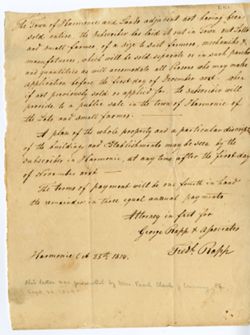 The Town of Harmonie and Lands adjacent not having been
sold entire the Subscriber has laid it out in Town out Lotts
and small farms of a size to suit farmers, mechanicks &
manufacturers, which will be sold separate or in such parcels
and quantities as will accommodate all Persons who may make
application before the first day of December next. and
if not previously sold or applied for, the subscriber will
provide to a public sale in the Town of Harmonie of
the Lots and small farms.
A plan of the whole property and a particular descript
of the buildings and Establishments may be seen by the
Subscriber in Harmonie, at any time after the first day
of November next
The terms of payment will be one fourth in hand
the remainder in three equal annual payments
Attorney in fact for
George Rapp & Associates
Fredk. Rapp
Harmonie Oct 25th 1814.
This letter was presented by Mrs.